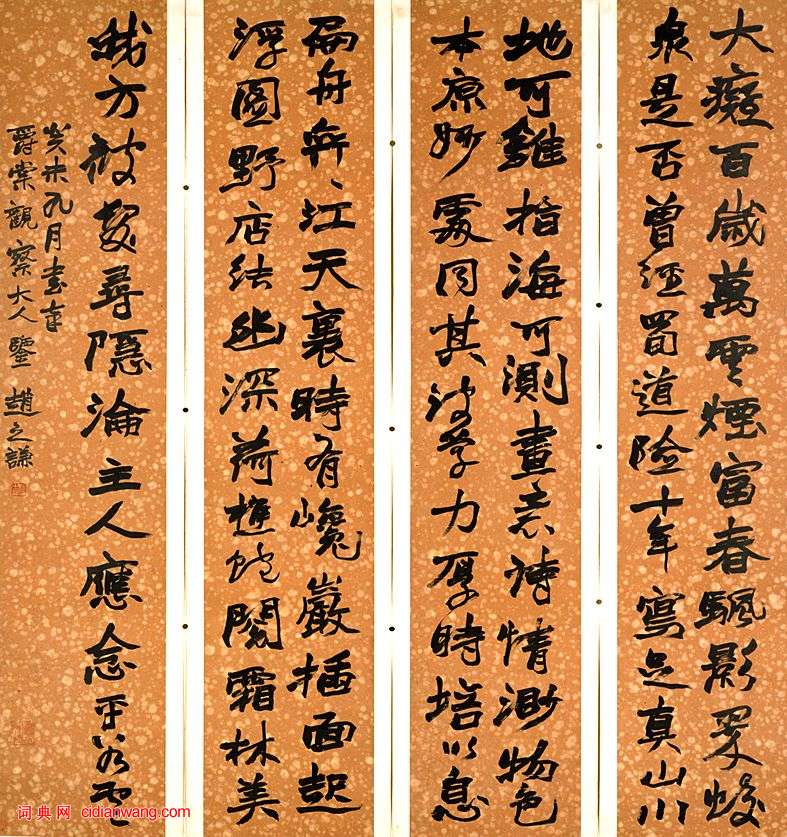 大癡百歲萬雲煙富春颿影蛟
泉是否曾經蜀道險十年寫足真山川
地可錐指海可測畫意詩情渺物色
本原妙處同其學力厚時培以息
扁舟奔〻江天裏時有巉巖插面起
浮圖野店結幽深荷樵能閱霜林美
我方被髮尋隱淪主人應念平
癸未九月書奉
爵棠觀察大人鑒 趙之謙
词典网 cidianwang.com